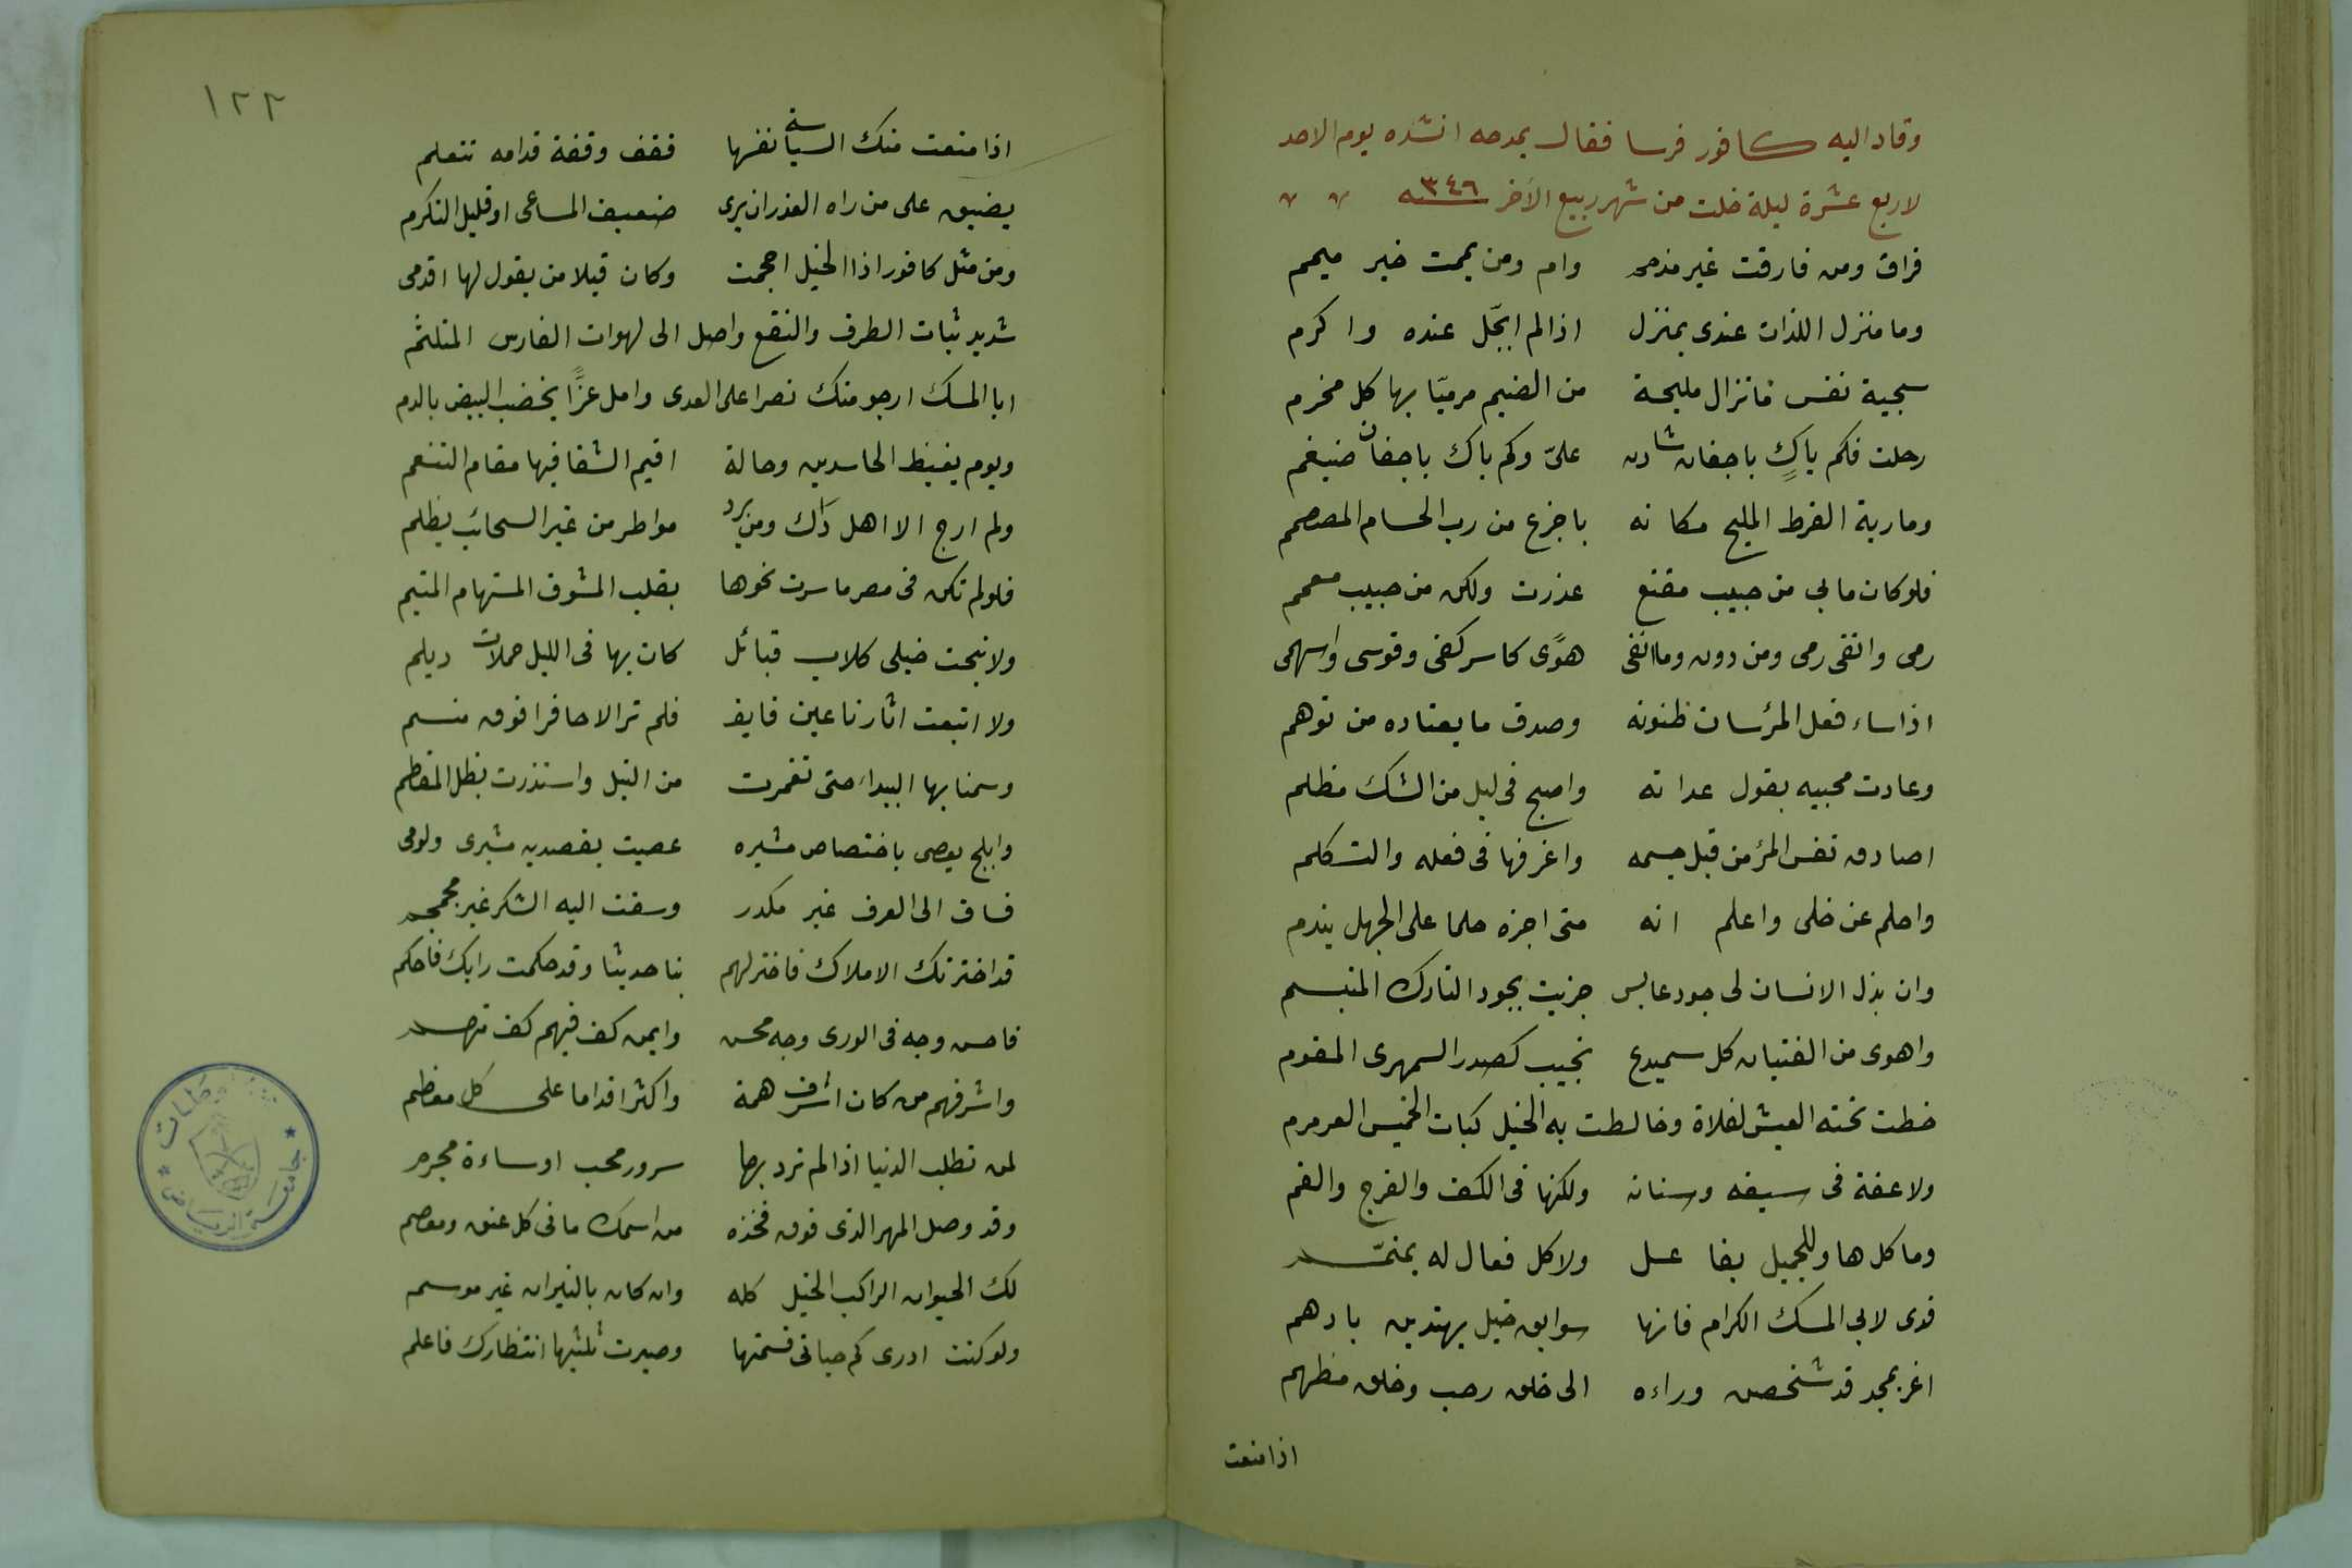 وقاد اليه كافور فرسا فقال يمدحه انشده يوم الاحد
لاربع عشرة ليلة خلت من شهر ربيع الآخر سنه ٣٤٦
فراق ومن فارقت غير مذمم وام ومن يممت خير ميمم
وما منزل اللذات عندى بمنزل اذا لم ابجّل عنده واكرم
سجية نفس ماتزال مليحة من الضيم مرميّا بها كل مخرم
رحلت فكم باكٍ باجفان شادن علىّ وكم باك باجفان ضيغم
وما ربة القرط المليح مكانه باجزع من رب الحسام المصمم
فلو كان مابى من حبيب مقنع عذرت ولكن من حبيب معمم
رمى واتقى رمى ومن دون وما اتقى هوًى كاسر كفى وقوسى واسهمى
اذا ساء فعل المرء سات ظنونه وصدق ما يعتاده من توهم
وعادت محبيه بقول عداته واصبح فى ليل من الشك مظلم
اصادق نفس المرء من قبل جسمه واعرفها فى فعله والتكلم
واحلم عن خلى واعلم انه متى اجزه حلما على الجهل يندم
وان بذل الانسان لى جود عابس جزيت بجود التارك المتبسم
واهوى من الفتيان كل سميدع نجيب كصدر السمهرى المقوم
خطت تحته العيش لفلاة وخالطت به الخيل كبات الخميس العرمرم
ولا عفة فى سيفه وسنانه ولكنها فى الكف والفرج والفم
وما كل هاو للجميل بفاعل ولا كل فعال له بمتمّم
فدى لابى المسك الكرام فانها سوابق خيل يهتدين بادهم
اغر بمجد قد شخصن وراءه الى خلق رحب وخلق مطهم
اذا منعت
١٢٢
اذا منعت منك السياسة نفسها فقف وقفة قدامه تتعلم
يضيق على من راه العذر ان يرى ضعيف المساعى او قليل التكرم
ومن مثل كافور اذا الخيل احجمت وكان قيلا من يقول لها اقدمى
شديد ثبات الطرف والنقع واصل الى لهوات الفارس المتلثم
ابا المسك ارجو منك نصرا على العدى وامل عزًّا يخضب البيض بالدم
ويوم يغيظ الحاسدين وحالة اقيم الشقا فيها مقام التنعم
ولم ارج الا اهل ذاك ومن يرد مواطر من غير السحائب يظلم
فلو لم تكن فى مصر ما سرت نحوها بقلب المشوق المستهام المتيم
ولا نبحت خيلى كلاب قبائل كان بها فى الليل حملات ديلم
ولا اتبعت اثارنا عين قايف فلم تر الا حافرا فوق منسم
وسمنا بها البيداء حتى تغمرت من النيل واستذرت بظل المقطم
وابلج يعصى باختصاص مشيره عصيت بقصديه مشيرى ولومى
فساق الى العرف غير مكدر وسقت اليه الشكر غير مجمجم
قد اخترتك الاملاك فاختر لهم بنا حديثا وقد حكمت رايك فاحكم
فاحسن وجه فى الورى وجه محسن وايمن كف فيهم كف منعم
واشرفهم من كان اشرف همة واكثر اقداما على كل معظم
لمن تطلب الدنيا اذا لم ترد بها سرور محب او ساءة مجرم
وقد وصل المهر الذى فوق فخذه من اسمك ما فى كل عنق ومعصم
لك الحيوان الراكب الخيل كله وان كان بالنيران غير موسم
ولو كنت ادرى كم حياتى قسمتها وصيرت ثلثيها انتظارك فاعلم
جامعة الرياض